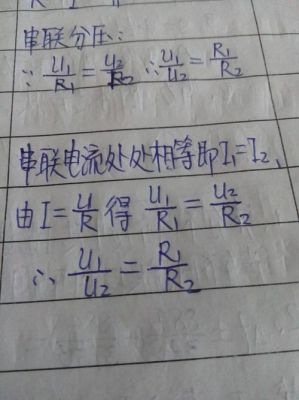 串联分压:
∵ U₁/R₁ = U₂/R₂ ∴ U₁/U₂ = R₁/R₂
串联电流处处相等即I₁=I₂,
由I=U/R 得 U₁/R₁ = U₂/R₂
∴ U₁/U₂ = R₁/R₂